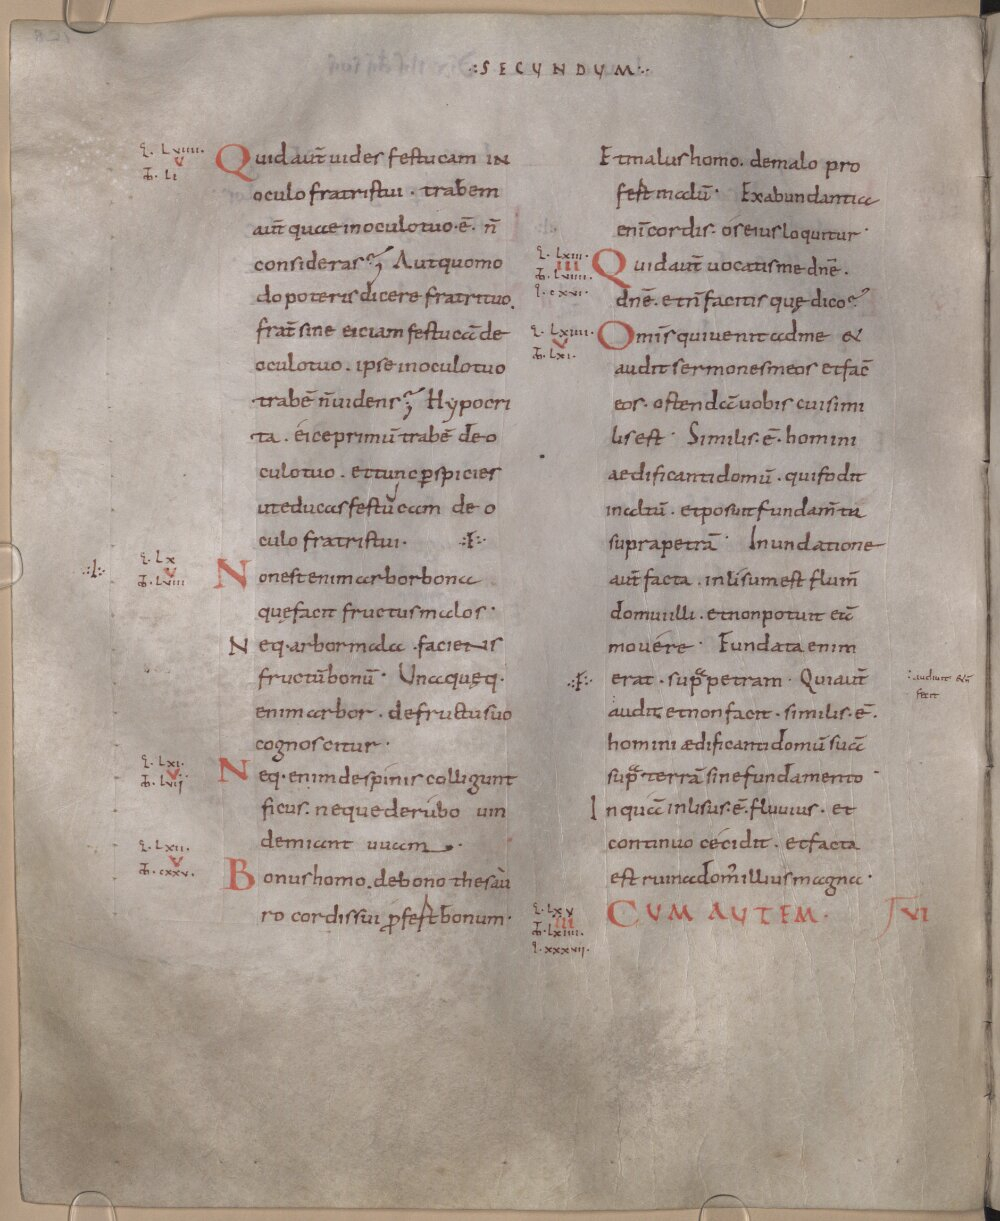 :SECUNDUM:
L. LVIIII.
V
LI
Quid aut̄ uides festucam in
oculo fratris tui · trabem
aut̄ quae in oculo tuo · ē · n̄
consideras? Aut quomo
do poteris dicere fratri tuo.
frat̄ sine eiciam festucā de
oculo tuo . ipse in oculo tuo
trabē n̄ uidens? Hypocri
ta . eice primū trabē de o
culo tuo . et tunc ꝑspicies
ut educas festucam de o
culo fratris tui ·
L. LX
V
LVIII
Non est enim arbor bona
quę facit fructus malos ·
Neq · arbor mala · faciens
fructū bonū · Unaquęq ·
enim arbor · de fructu suo
cognoscitur ·
L. LXI.
V
LVII
Neq · enim de spinis colligunt
ficus . neque de rubo uin
demiant uuam ·
L. LXII.
V
CXXV.
Bonus homo . de bono thesau
ro cordis sui ꝓfert bonum ·
Et malus homo . de malo pro
fert malū · Ex abundantia
enī cordis · os eius loquitur ·
L. LXIII.
III
LVIIII.
CXXVI.
Quid aut̄ uocatis me dn̄e ·
dn̄e · et n̄ facitis quę dico?
L. LXIIII.
V
LXI.
Omīs qui uenit ad me &
audit sermones meos et fac̄
eos · ostendā uobis cui simi
lis est · Similis · ē · homini
aedificanti domū · qui fodit
in altū · et posuit fundam̄ta
supra petrā · Inundatione
aut̄ facta . inlisum est flum̄
domui illi . et non potuit eā
mouére · Fundata enim
erat · sup̄ petram · Qui aut̄
audit, et non facit · similis · ē ·
homini ædificanti domū suā
sup̄ terrā sine fundamento ·
In quā inlisus · ē · fluuius · et
continuo cecidit · et facta
est ruina dom̄ illius magna ·
L. LXV
III
LXIIII.
XXXVII.
CUM AUTEM · VI